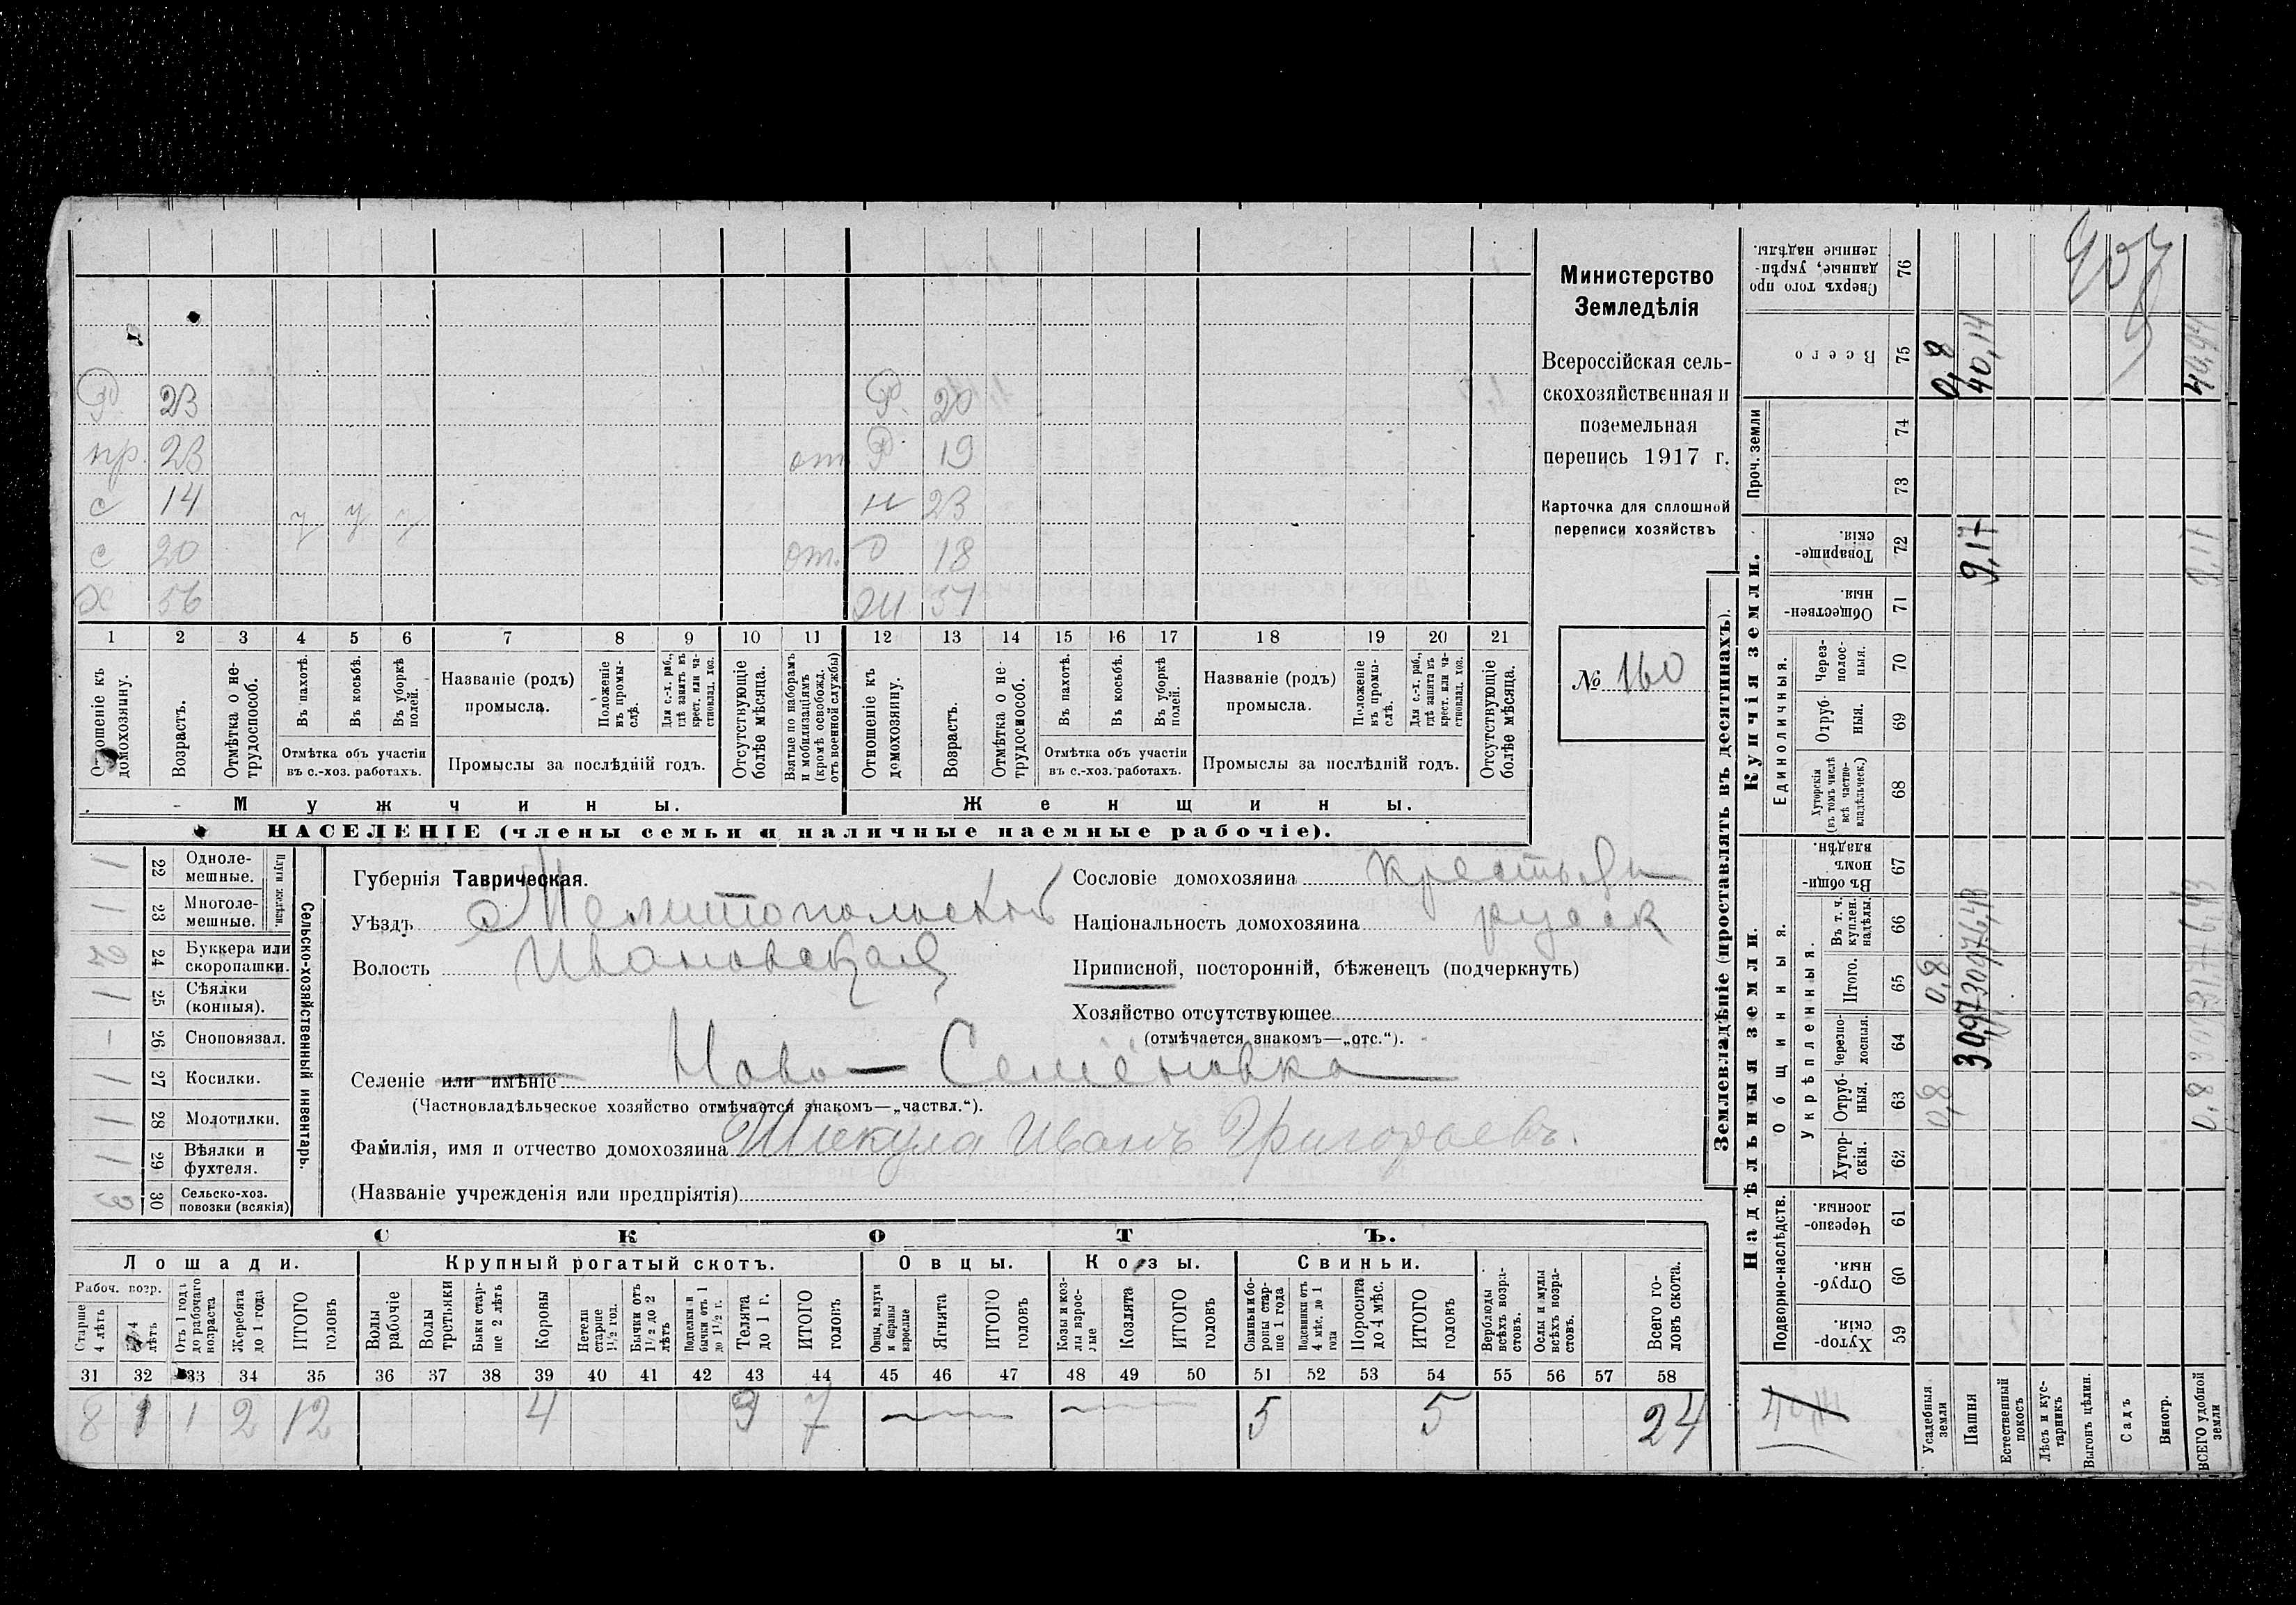 Министерство
Земледѣлія
Всероссійская сель-
скохозяйственная и
поземельная
перепись 1917 г.
Карточка для сплошной
переписи хозяйствъ
№ 160
Р. 23 Р. 20
пр. 23 от. Р 19
с 14 у у у н 23
с 20 от. 18
Х 56 51
1 2 3 4 5 6 7 8 9 10 11 12 13 14 15 16 17 18 19 20 21
Отношеніе къ домохозяину.
Возрастъ.
Отмѣтка о не-трудоспособ.
Въ пахотѣ.
Въ косьбѣ.
Въ уборкѣ полей.
Отмѣтка объ участіи
въ с.-хоз. работахъ.
Названіе (родъ)
промысла.
Положеніе въ промы-слѣ.
Для с.-х. раб., гдѣ занятъ въ крест. или ча-стновлад. хоз.
Промыслы за послѣдній годъ.
Отсутствующіе болѣе мѣсяца.
Взятые по наборамъ и мобилизаціямъ (кромѣ освобожд. отъ военной службы)
Отношеніе къ домохозяину.
Возрастъ.
Отмѣтка о не-трудоспособ.
Въ пахотѣ.
Въ косьбѣ.
Въ уборкѣ полей.
Отмѣтка объ участіи
въ с.-хоз. работахъ.
Названіе (родъ)
промысла.
Положеніе въ промы-слѣ.
Для с.-х. раб., гдѣ занята въ крест. или ча-стновлад. хоз.
Промыслы за послѣдній годъ.
Отсутствующіе болѣе мѣсяца.
Мужчины. Женщины.
НАСЕЛЕНІЕ (члены семьи и наличные наемные рабочіе).
Сельско-хозяйственный инвентарь.
Плуги желѣзн.
1 22 Одноле-мешные.
1 23 Многоле-мешные.
2 24 Буккера или скоропашки.
1 25 Сѣялки (конныя).
- 26 Сноповязал.
1 27 Косилки.
1 28 Молотилки.
1 29 Вѣялки и фухтеля.
3 30 Сельско-хоз. повозки (всякія)
Губернія Таврическая.
Уѣздъ Мелитопольскій
Волость Ивановская
Сословіе домохозяина крестьян
Національность домохозяина русск
Приписной, посторонній, бѣженецъ (подчеркнуть)
Хозяйство отсутствующее
(отмѣчается знакомъ—„отс.“).
Селеніе или имѣніе Ново-Семёновка
(Частновладѣльческое хозяйство отмѣчается знакомъ—„частвл.“).
Фамилія, имя и отчество домохозяина Шкула Иванъ Григорьевъ.
(Названіе учрежденія или предпріятія)
СКОТЪ.
Лошади. Крупный рогатый скотъ. Овцы. Козы. Свиньи.
Рабоч. возр.
Старше 4 лѣтъ
лѣтъ
Отъ 1 года до рабочаго возраста
Жеребята до 1 года
ИТОГО головъ
Волы рабочіе
Волы третьяки
Быки стар-ше 2 лѣтъ
Коровы
Нетели старше 1½ год.
Бычки отъ 1½ до 2 лѣтъ
Подтелки и бычки отъ 1 до 1½ г.
Телята до 1 г.
ИТОГО головъ
Овцы, валухи и бараны взрослые
Ягнята
ИТОГО головъ
Козы и коз-лы взрос-лые
Козлята
ИТОГО головъ
Свиньи и бо-ровы стар-ше 1 года
Подсвинки отъ 4 мѣс. до 1 года
Поросята до 4 мѣс.
ИТОГО головъ
Верблюды всѣхъ возра-стовъ.
Ослы и мулы всѣхъ возра-стовъ.
Всего го-ловъ скота.
31 32 33 34 35 36 37 38 39 40 41 42 43 44 45 46 47 48 49 50 51 52 53 54 55 56 57 58
8 1 1 2 12 4 3 7 5 5 24
Землевладѣніе (проставлять въ десятинахъ).
Надѣльныя земли. Купчія земли. Проч. земли
Подворно-наслѣдств.
Общинныя.
Укрѣпленныя.
Единоличныя.
59 Хутор-скія.
60 Отруб-ныя.
61 Черезпо-лосныя.
62 Хутор-скія.
63 Отруб-ныя.
64 Черезпо-лосныя.
65 Итого.
66 Въ т. ч. куплен. надѣлы.
67 Въ общи-номъ владѣн.
68 Хуторскія (въ томъ числѣ всѣ частно-владѣльческ.)
69 Отруб-ныя.
70 Через-полос-ныя.
71 Обществен-ныя.
72 Товарище-скія.
73
74
75 Всего
76 Сверхъ того про-данные, укрѣп-ленные надѣлы.
Усадебныя земли 0,8 0,8 0,8
Пашня 30,97 9,17 40,14
Естественный покосъ
Лѣсъ и кус-тарникъ
Выгонъ цѣлин.
Садъ
Виногр.
ВСЕГО удобной земли 0,8 9,17 40,94